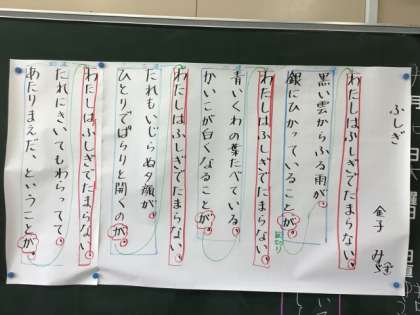 ふしぎ
金子 みすゞ
わたしはふしぎでたまらない、
黒い雲からふる雨が、
銀にひかっていることが。
わたしはふしぎでたまらない、
青いくわの葉たべている、
かいこが白くなることが。
わたしはふしぎでたまらない、
たれもいじらぬ夕顔が、
ひとりでぱらりと開くのが。
わたしはふしぎでたまらない、
たれにきいてもわらってて、
あたりまえだ、ということが。